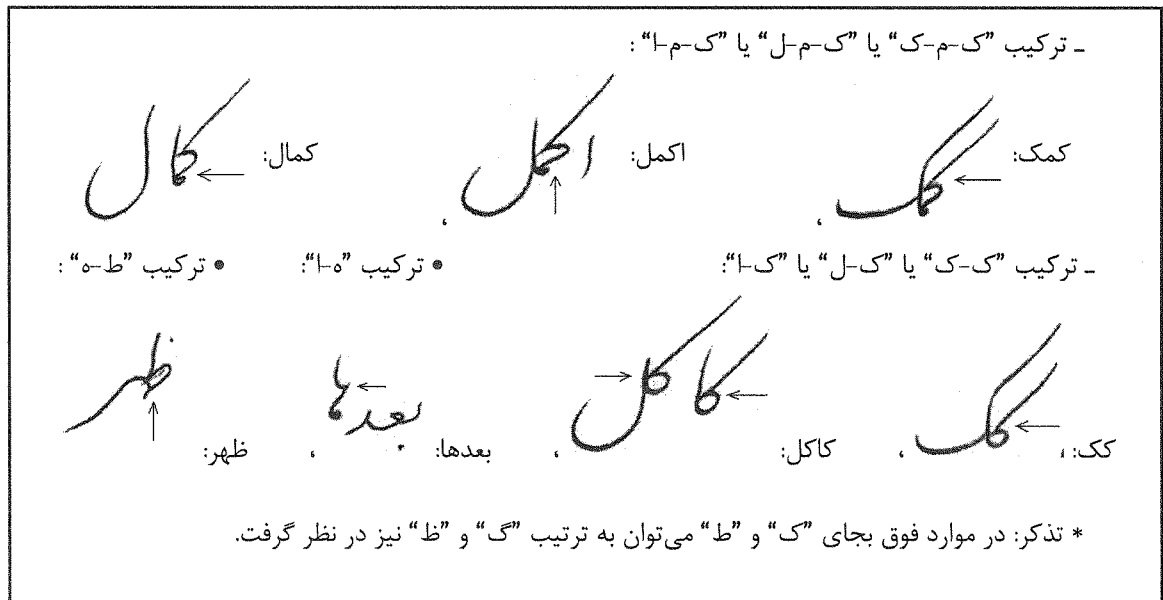 ـ ترکیب ”ک-م-ک“ یا ”ک-م-ل“ یا ”ک-م-ا“ :
کمک: کمک ، اکمل: اکمل ، کمال: کمال
ـ ترکیب ”ک-ک“ یا ”ک-ل“ یا ”ک-ا“: • ترکیب ”ه-ا“: • ترکیب ”ط-ه“ :
کک: کک ، کاکل: کاکل ، بعدها: بعدها ، ظهر: ظهر
* تذکر: در موارد فوق بجای ”ک“ و ”ط“ می‌توان به ترتیب ”گ“ و ”ظ“ نیز در نظر گرفت.